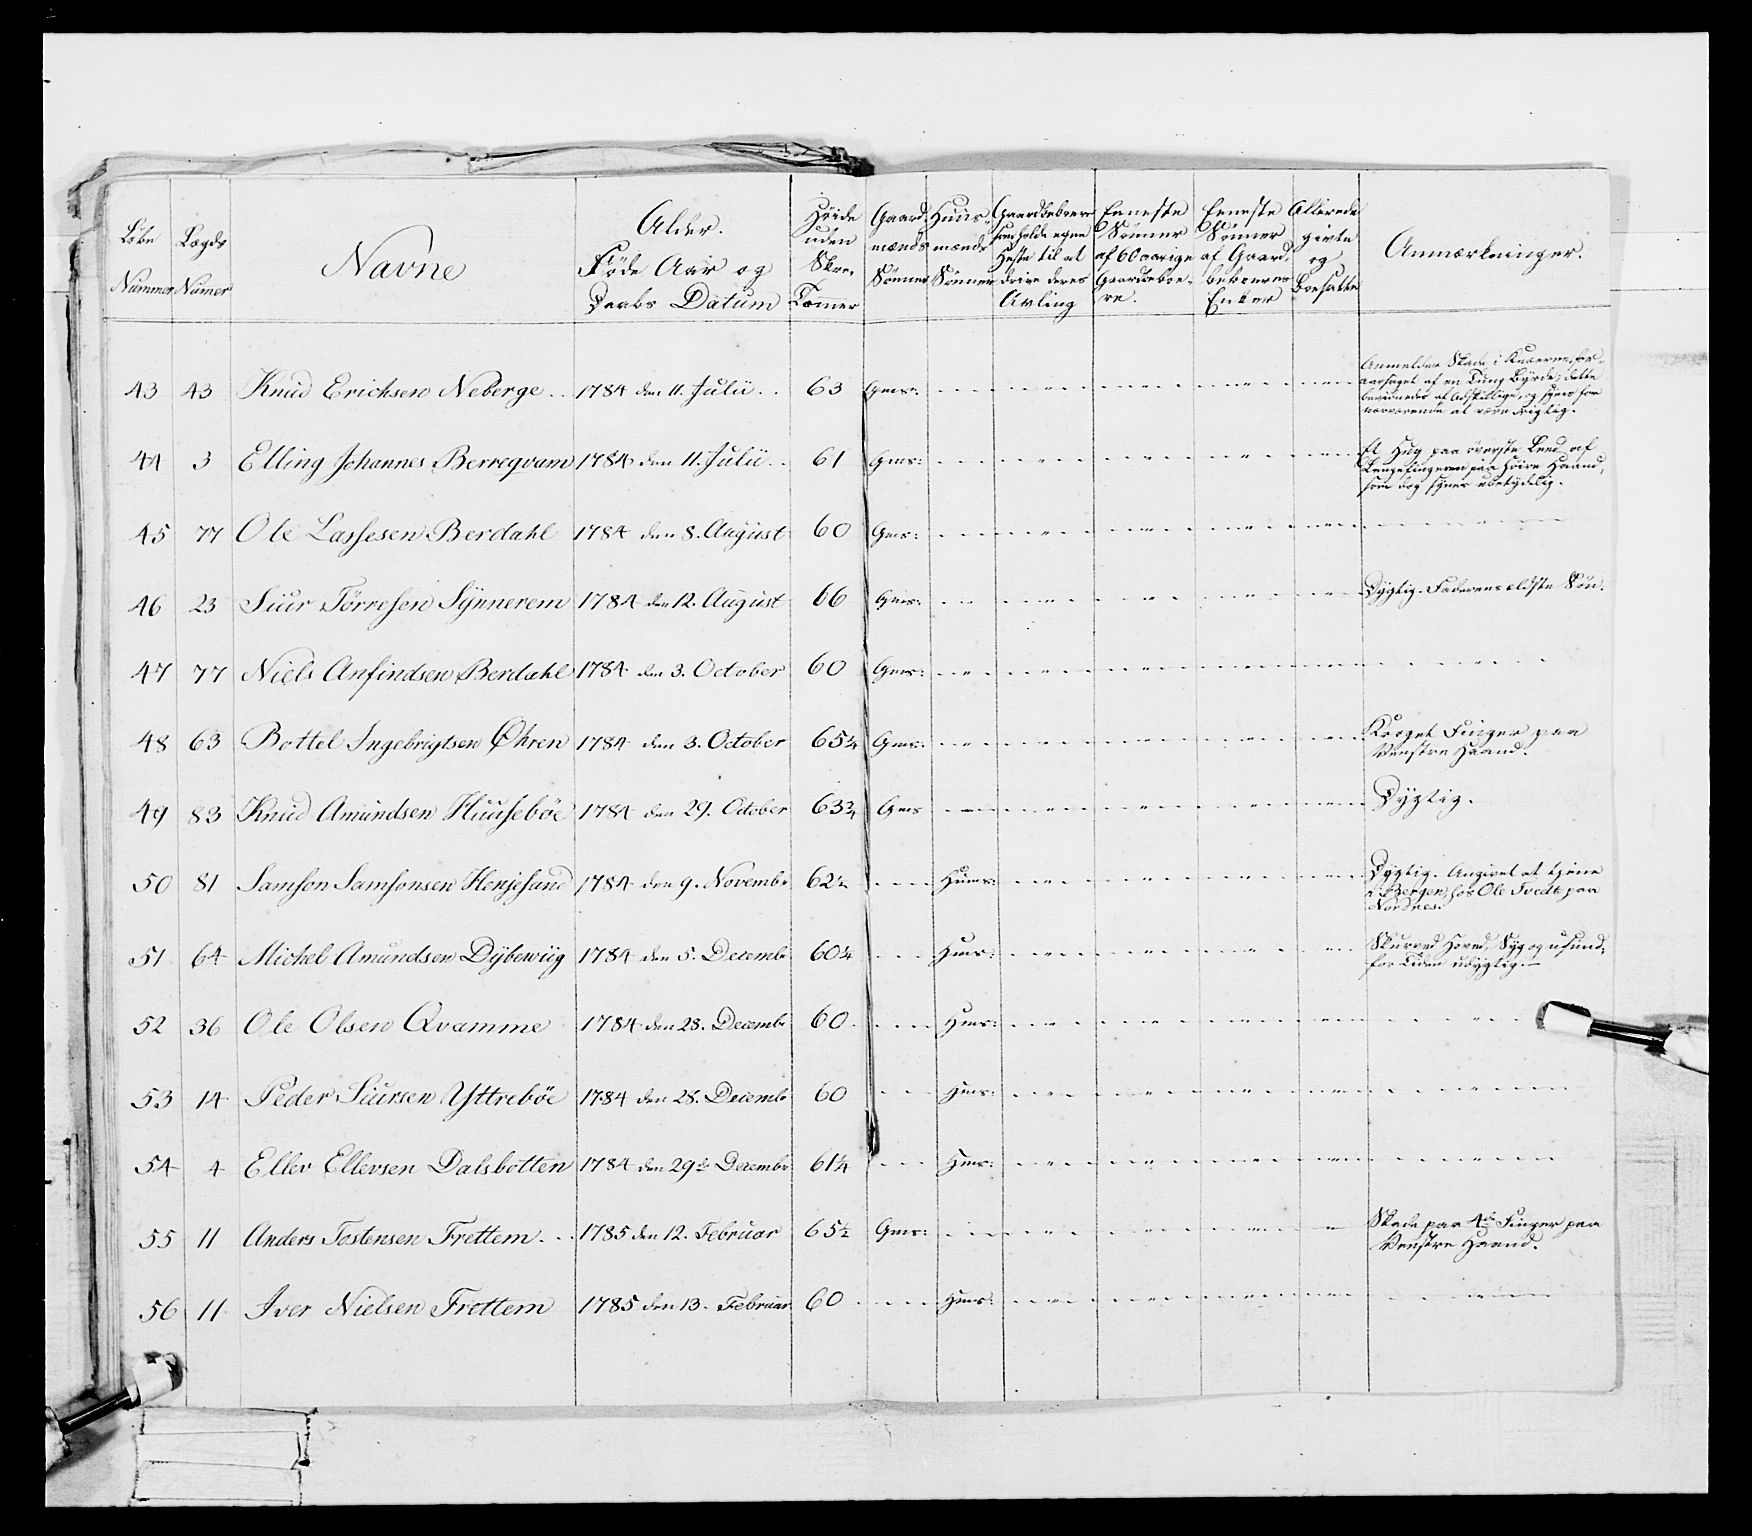 Løbe Nummer
Lægds Numer
Navne
Alder. Føde Aar og Daabs Datum
Høide uden Skoe. Tommer
Gaardmænds Sønner
Huusmænds Sønner
Gaardbeboere som holde egne Heste til at drive deres Avling
Eeneste Sønner af 60 aarige Gaardbeboere.
Eeneste Sønner af Gaardbeboeres Enker
Allerede givte og Boesatte
Anmærkninger.
43 43 Knud Erichsen Neberge 1784 den 11. Julii 63 Gms: Anmelder Skade i Knæerne, foraarsaget af en Tung Byrde; dette af Adskillige, og synes for nærværende at være dygtig.
44 3 Elling Johannes Berreqvam 1784 den 11. Julii 61 Gms: Et Hug paa øverste Leed af paa Høire Haand, som dog synes ubetydelig.
45 77 Ole Lassesen Berdahl 1784 den 8. August 60 Gms:
46 23 Siur Törresen Synnerem 1784 den 12. August 66 Gms: Dygtig. Faderens eldste Søn.
47 77 Niels Anfindsen Berdahl 1784 den 3. October 60 Gms:
48 63 Bottel Ingebrigtsen Øhren 1784 den 3. October 65¼ Gms: Kroget Finger paa Venstre Haand.
49 83 Knud Amundsen Huusebøe 1784 den 29. October 63¾ Gms Dygtig.
50 81 Samson Samsonsen Henjesand 1784 den 9. Novembr 62½ Hums: Dygtig. Angivet at tjene i Bergen, hos Ole Tvedt paa Nordnes.
51 64 Michel Amundsen Dybewiig 1784 den 5. Decembr 60¼ Hms: Skurved Hoved, Syg og usund, for Tiden udygtig.
52 36 Ole Olsen Qvamme 1784 den 28. Decembr 60 Hms:
53 14 Peder Siursen Yttrebøe 1784 den 28. Decembr 60 Hms:
54 4 Ellev Ellevsen Dalsbotten 1784 den 29de Decembr 61¼ Hms:
55 11 Anders Tostensen Frettem 1785 den 12. Februar 65½ Gms: Skade paa 4de Finger paa Venstre Haand.
56 11 Iver Nielsen Frettem 1785 den 13. Februar 60 Hms: